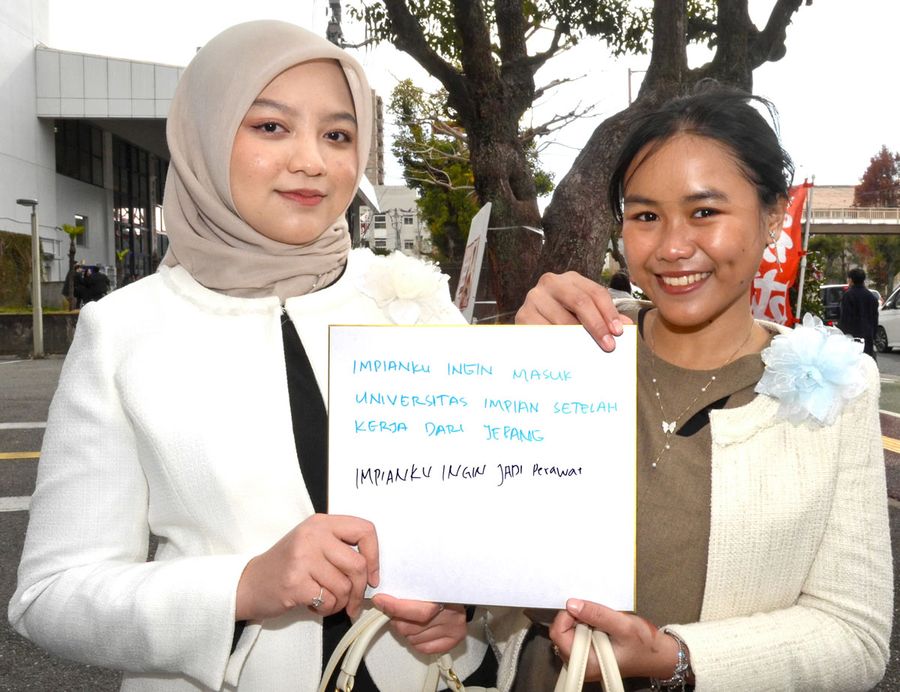 IMPIANKU INGIN MASUK
UNIVERSITAS IMPIAN SETELAH
KERJA DARI JEPANG
IMPIANKU INGIN JADI Perawat